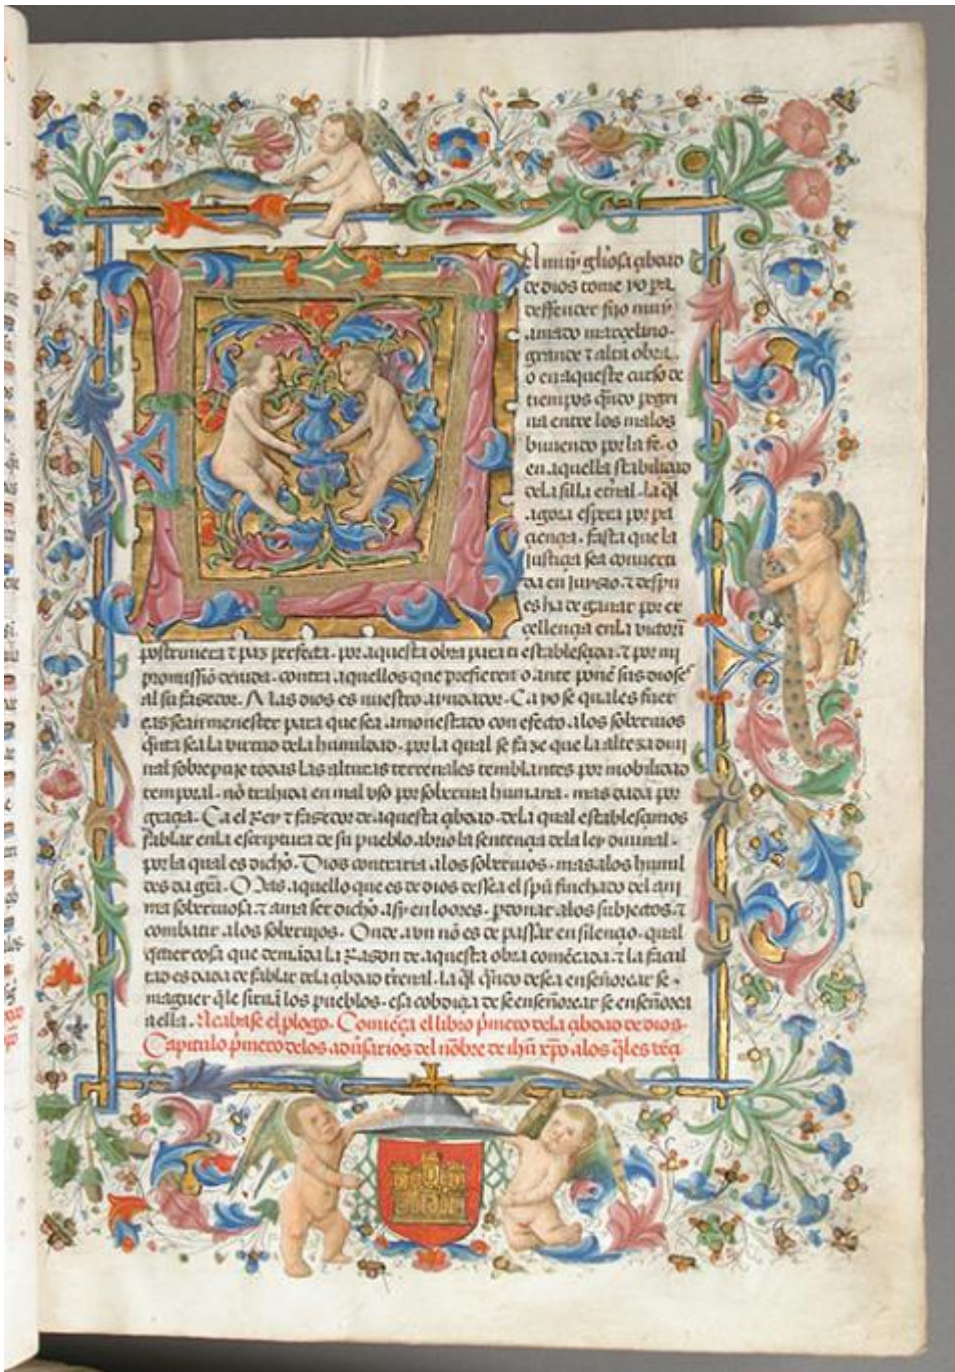 El muy gl'iosa çibdad
de dios tome yo pa
deffender fijo muy
amado marçelino.
grande τ alta obra.
o en aqueste curso de
tienpos q̃ndo pegri
na entre los malos
biuiendo por la fe. o
en aquella stabilidad
dela silla et'nal. la q̃l
agora espera por pa
çiençia. fasta que la
justiçia sea conuerti
da en juyzio. τ despu
es ha de ganar por ex
çellençia enla victoria
postrimera τ paz perfecta. por aquesta obra para ti establesçida. τ por mi
promissiõ deuida. contra aquellos que prefieren o ante ponẽ sus dioses
al su fazedor. Mas dios es nuestro ayudador. Ca yo se quales fuer
ças sean menester para que sea amonestado con efecto alos soberuios
q̃nta sea la virtud dela humildad. por la qual se faze que la alteza diui
nal sobrepuje todas las alturas terrenales temblantes por mobilidad
temporal. nõ trahida en mal vso por soberuia humana. mas dada por
graçia. Ca el Rey τ fazedor de aquesta çibdad. dela qual establesçamos
fablar enla escriptura de su pueblo. abrio la sentençia dela ley diuinal.
por la qual es dicho. Dios contraria alos soberuios. mas alos humil
des da gr̃a. Mas aquello que es de dios dessea el spũ finchado del ani
ma soberuiosa. τ ama ser dicho asy en loores. p̱donar alos subjectos. τ
combatir alos soberuios. Onde avn nõ es de passar en silençio. qual
quier cosa que demãda la Razon de aquesta obra comẽçada. τ la facul
tad es dada de fablar dela çibdad t'renal. la q̃l q̃ndo desea enseñorear se.
maguer q̃le siruã los pueblos. esa cobdiçia de se enseñorear se enseñorea
a ella. Acabase el p̱logo. Comiẽça el libro p̃mero dela çibdad de dios.
Capitulo p̃mero delos adũsarios del nõbre de ihũ xp̃o alos q̃les